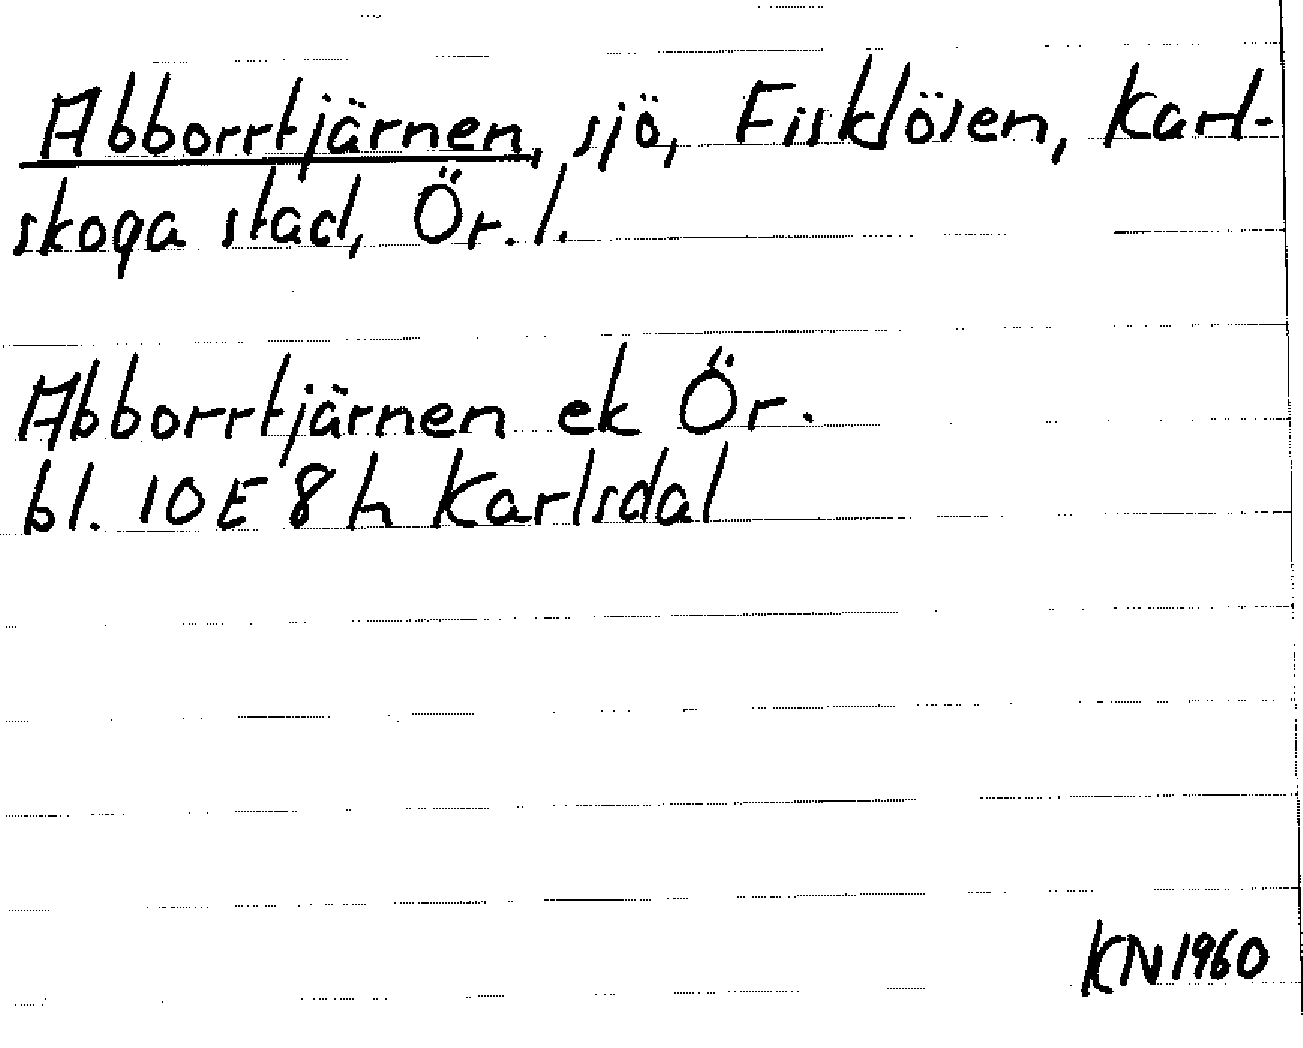 Abborrtjärnen, sjö, Fisklösen, Karl-
skoga stad, Ör. l.
Abborrtjärnen ek Ör.
bl. 10 E 8 h Karlsdal
KN 1960